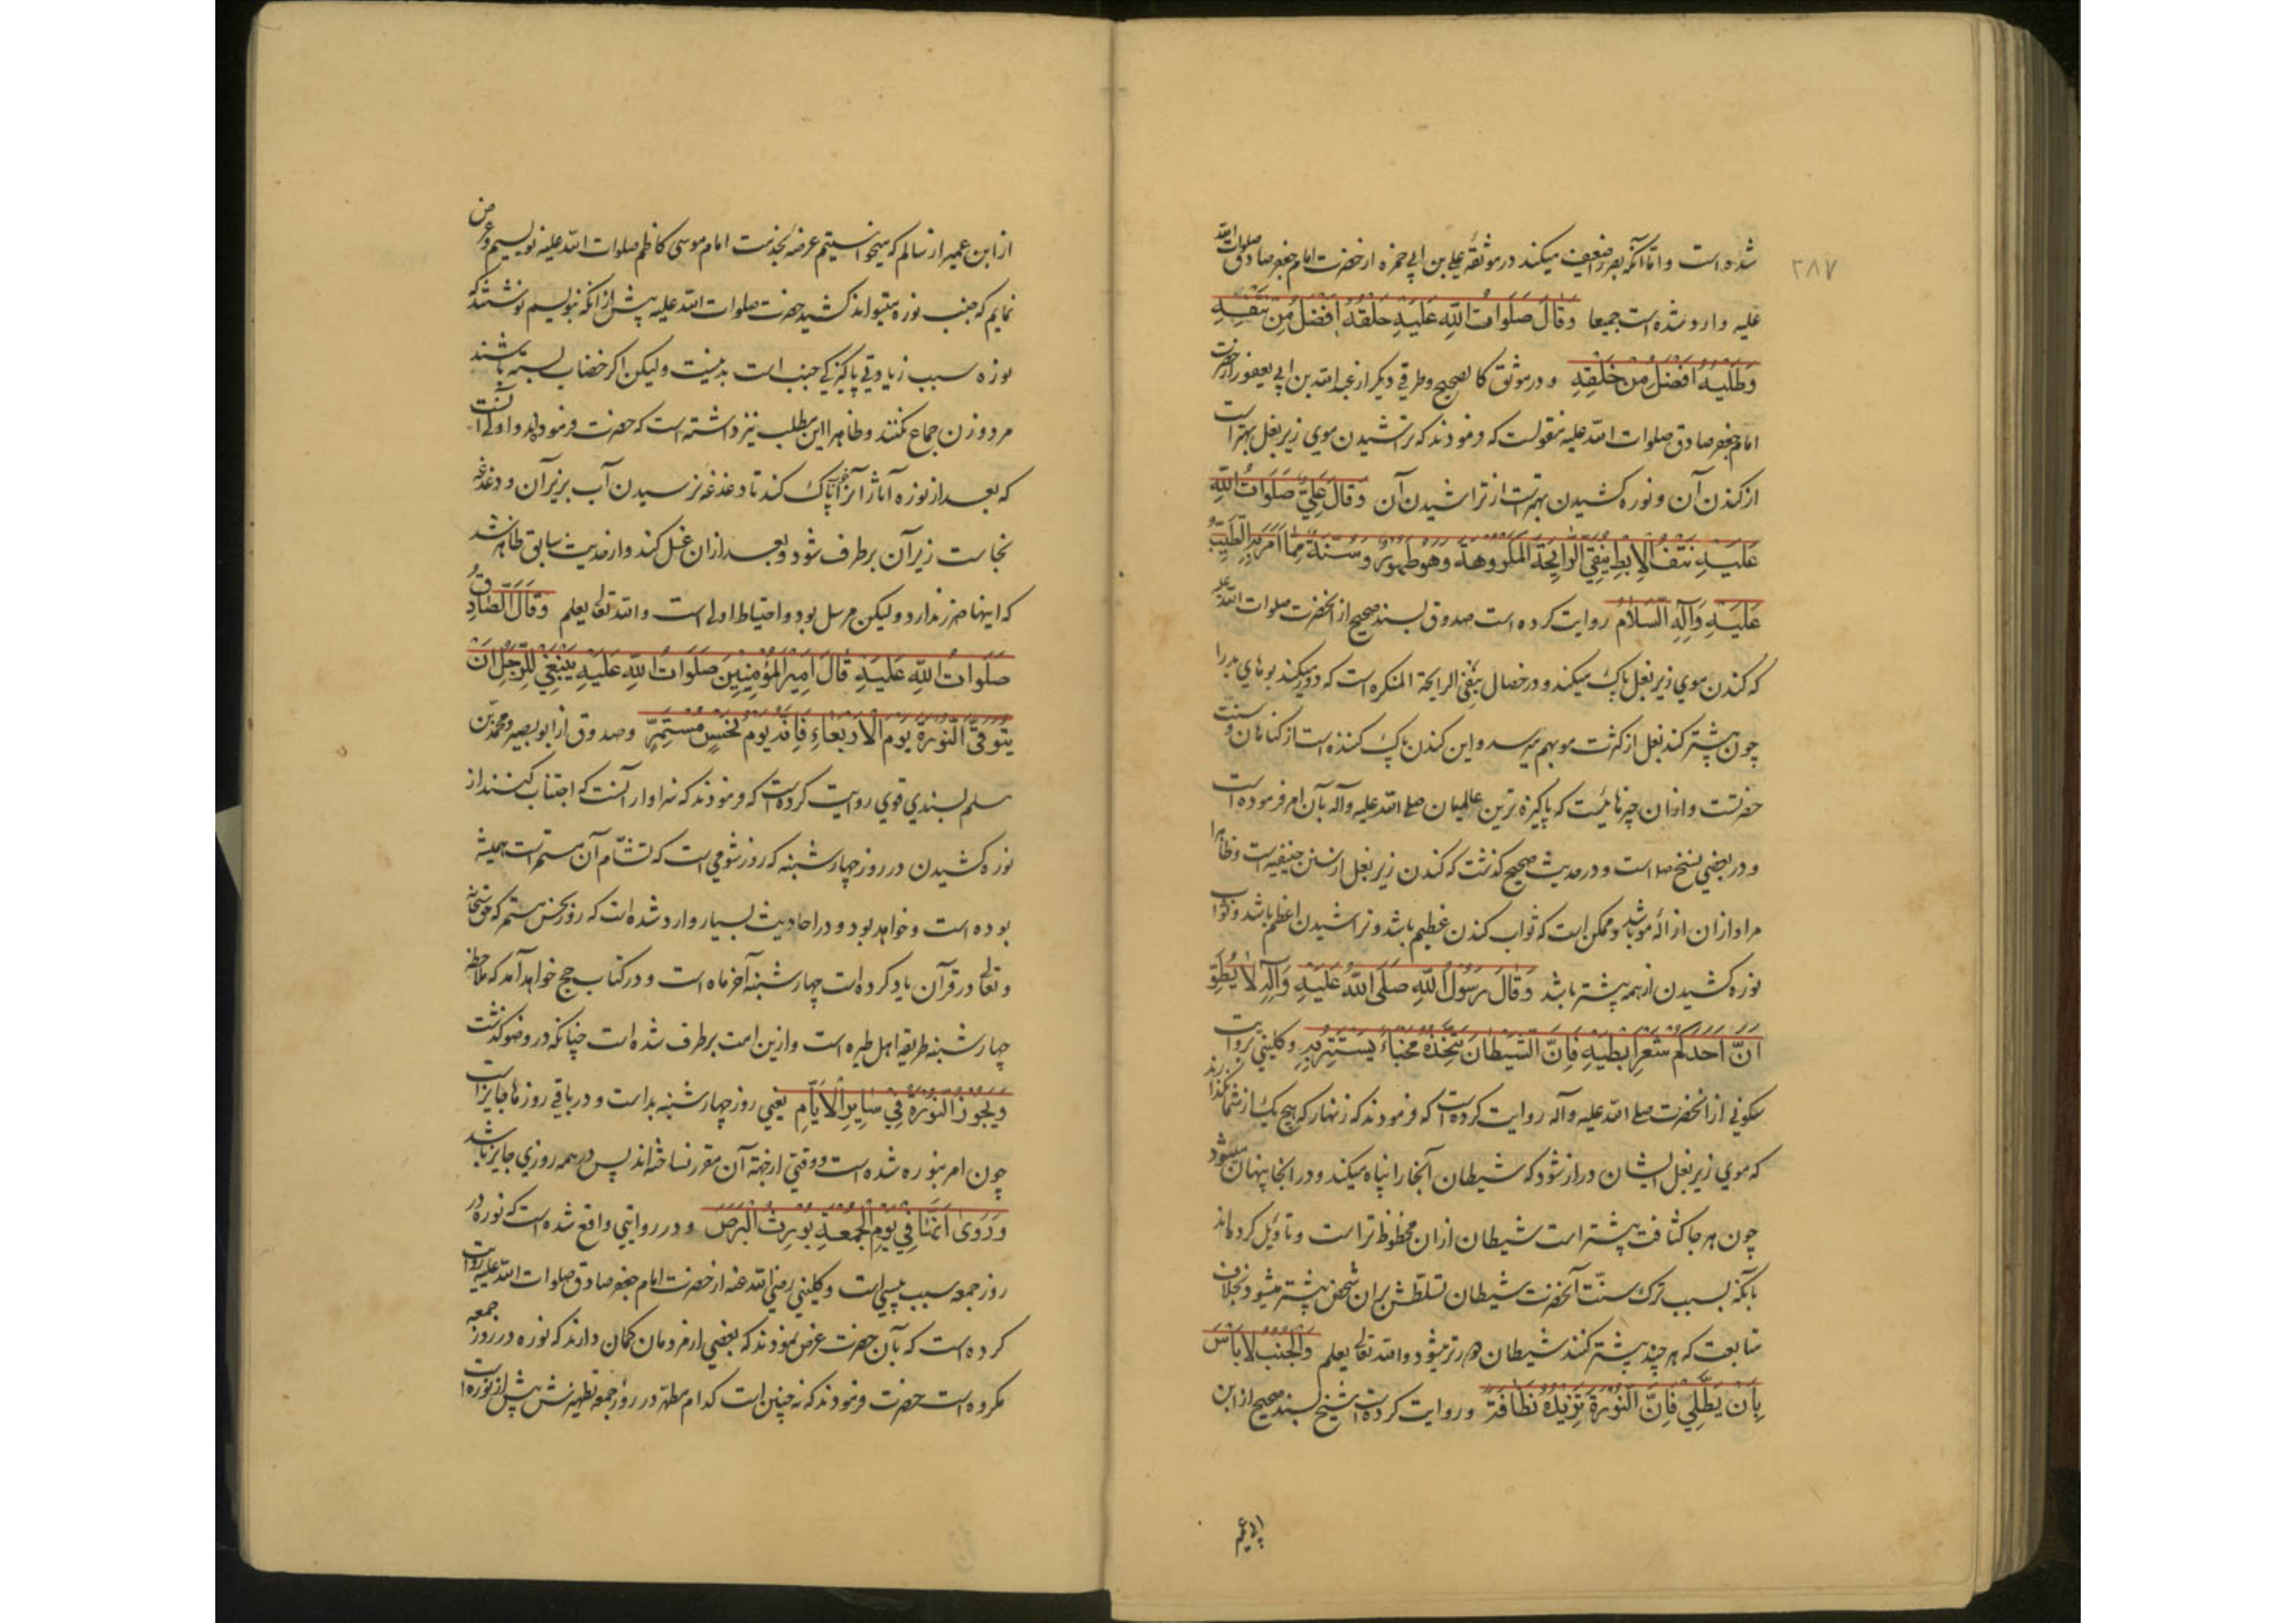 ۲۸۷
شده است و اما آنکه بصر را ضعیف میکند در موثقهٔ علی بن ابی حمزه از حضرت امام جعفر صادق صلوات الله
علیه وارد شده است جمیعا وَقَالَ صَلَوَاتُ اللّٰهِ عَلَیْهِ حَلْقُهُ اَفْضَلُ مِنْ نَتْفِهِ
وَطَلْیُهُ اَفْضَلُ مِنْ حَلْقِهِ و در موثق کالصحیح و طرقی دیگر از عبدالله بن ابی یعفور از حضرت
امام جعفر صادق صلوات الله علیه منقولست که فرمودند که تراشیدن موی زیر بغل بهتر است
از کندن آن و نوره کشیدن بهتر است از تراشیدن آن وَقَالَ عَلِیٌّ صَلَوَاتُ اللّٰهِ
عَلَیْهِ نَتْفُ الْاِبِطِ یَنْفِی الرَّایِحَةَ الْمَکْرُوهَةَ وَهُوَ طَهُورٌ وَسُنَّةٌ مِمَّا اَمَرَ بِهِ الطَّیِّبُ
عَلَیْهِ وَآلِهِ السَّلَامُ روایت کرده است صدوق بسند صحیح از آنحضرت صلوات الله علیه
که کندن موی زیر بغل پاک میکند و در خصال ینفی الرایحة المنکره است که دور میکند بوهای بد را
چون بیشتر کند بغل از کثرت مو بهم میرسد و این کندن پاک کننده است از گناهان و سنت
حضرتست و از آن چیزهائیست که پاکیزه ترین عالمیان صلی الله علیه وآله بآن امر فرموده است
و در بعضی نسخ صلا است و در حدیث صحیح گذشت که کندن زیر بغل از سنن حنیفیه است و ظاهرا
مراد ازان ازالهٔ مو باشد و ممکن است که ثواب کندن عظیم باشد و تراشیدن اعظم باشد و ثواب
نوره کشیدن از همه بیشتر باشد وَقَالَ رَسُولُ اللّٰهِ صَلَّی اللّٰهُ عَلَیْهِ وَآلِهِ لَا یُطَوِّ
لَنَّ اَحَدُکُمْ شَعْرَ اِبْطَیْهِ فَاِنَّ الشَّیْطَانَ یَتَّخِذُهُ مَخْبَاءً یَسْتَتِرُ بِهِ و کلینی بروایت
سکونی از آنحضرت صلی الله علیه وآله روایت کرده است که فرمودند که زنهار که هیچ یک از شما نگذارند
که موی زیر بغل ایشان دراز شود که شیطان آنجا را پناه میکند و در آنجا پنهان میشود
چون هر جا کثافت بیشتر است شیطان ازان محظوظ تر است و تاویل کرده‌اند
بآنکه بسبب ترک سنت آنحضرت شیطان تسلطش بران شخص بیشتر میشود بخلاف
متابعت که هر چند بیشتر کنند شیطان دورتر میشود والله تعالی یعلم وَالْجُنُبُ لَا بَأْسَ
بِاَنْ یَطَّلِیَ فَاِنَّ النُّورَةَ تَزِیدُهُ نَظَافَةً و روایت کرده است شیخ بسند صحیح از ابن
ابی عمیر
از ابن عمیر از سالم که میخواستیم عرضه بخدمت امام موسی کاظم صلوات الله علیه نویسیم و عرض
نمایم که جنب نوره میتواند کشید حضرت صلوات الله علیه پیش از آنکه بنویسیم نوشتند که
نوره سبب زیادتی پاکیزگی جنب است بد نیست ولیکن اگر خضاب بسته باشند
مرد و زن جماع نکنند و ظاهرا این مطلب نیز داشته است که حضرت فرموده‌اند و اولی آنست
که بعد از نوره آثار آنرا پاک کند تا دغدغه نرسیدن آب بزیر آن و دغدغه
نجاست زیر آن برطرف شود و بعد ازان غسل کند و از حدیث سابق ظاهر شد
که اینها ضرر ندارد ولیکن مرسل بود و احتیاط اولی است والله تعالی یعلم وَقَالَ الصَّادِقُ
صَلَوَاتُ اللّٰهِ عَلَیْهِ قَالَ اَمِیرُ الْمُؤْمِنِینَ صَلَوَاتُ اللّٰهِ عَلَیْهِ یَنْبَغِی لِلرَّجُلِ اَنْ
یَتَوَقَّی النُّورَةَ یَوْمَ الْاَرْبِعَاءِ فَاِنَّهُ یَوْمُ نَحْسٍ مُسْتَمِرٍّ و صدوق از ابوبصیر و محمد بن
مسلم بسندی قوی روایت کرده است که فرمودند که سزاوار آنست که اجتناب کنند از
نوره کشیدن در روز چهارشنبه که روز شومی است که تشأم آن مستمر است همیشه
بوده است و خواهد بود و در احادیث بسیار وارد شده است که روز نحس مستمر که حق سبحانه
و تعالی در قرآن یاد کرده است چهارشنبه آخر ماه است و در کتاب حج خواهد آمد که ملاحظه
چهارشنبه طریقه اهل طیره است و ازین امت برطرف شده است چنانکه در وضو گذشت
وَیَجُوزُ النُّورَةُ فِی سَایِرِ الْاَیَّامِ یعنی روز چهارشنبه بد است و در باقی روزها جایز است
چون امر بنوره شده است و وقتی از جهة آن مقرر نساخته‌اند پس در همه روزی جایز باشد
وَرُوِیَ اَنَّهَا فِی یَوْمِ الْجُمُعَةِ یُورِثُ الْبَرَصَ و در روایتی واقع شده است که نوره در
روز جمعه سبب پیسی است و کلینی رضی الله عنه از حضرت امام جعفر صادق صلوات الله علیه روایت
کرده است که بآن حضرت عرض نمودند که بعضی از مردمان گمان دارند که نوره در روز جمعه
مکروه است حضرت فرمودند که نه چنین است کدام مطهر در روز جمعه تطهیرش بیش از نوره است